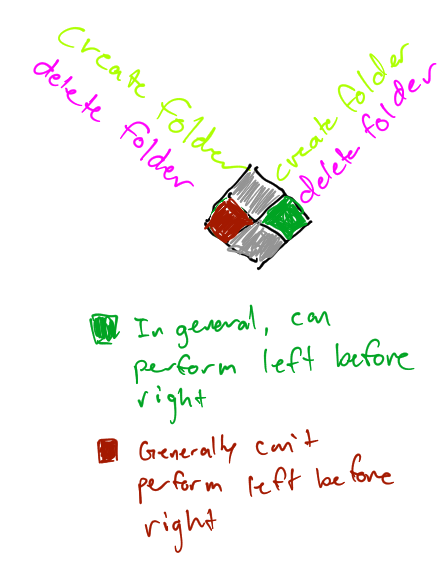 Create Folder
delete Folder
create folder
delete folder
In general, can
perform left before
right
Generally can't
perform left before
right